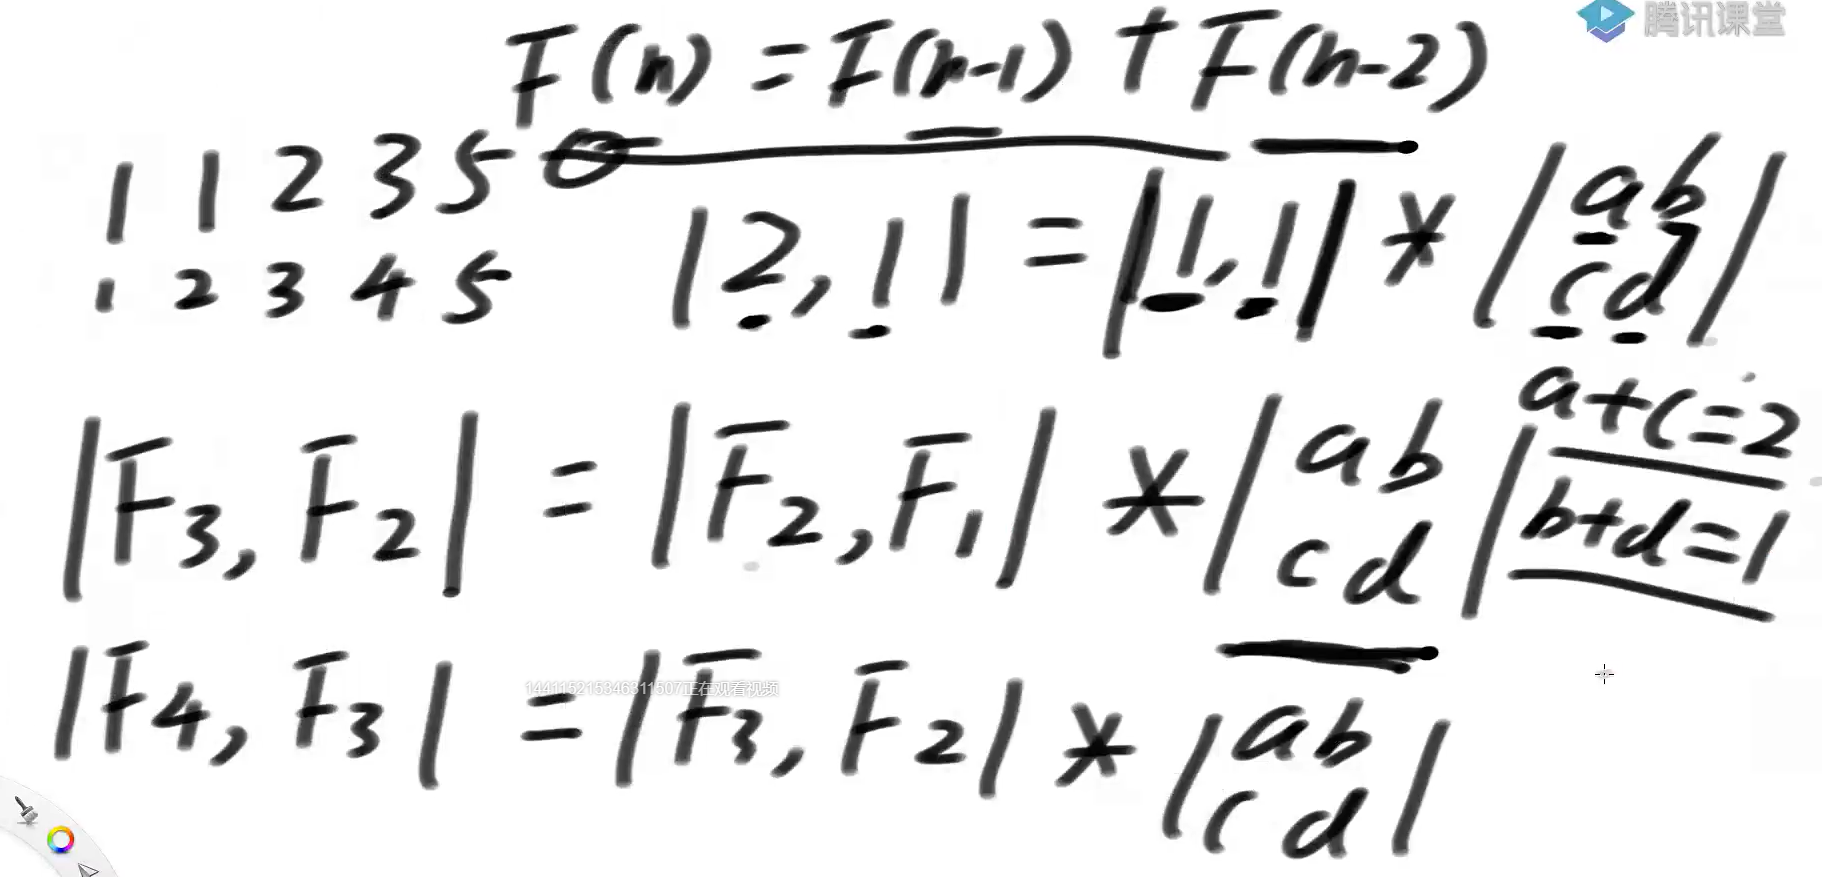 腾讯课堂
F(n) = F(n-1) + F(n-2)
1 1 2 3 5
1 2 3 4 5
|2, 1| = |1, 1| * |a b
c d|
a+c=2
b+d=1
|F3, F2| = |F2, F1| * |a b
c d|
|F4, F3| = |F3, F2| * |a b
c d|
144115215346311507正在观看视频